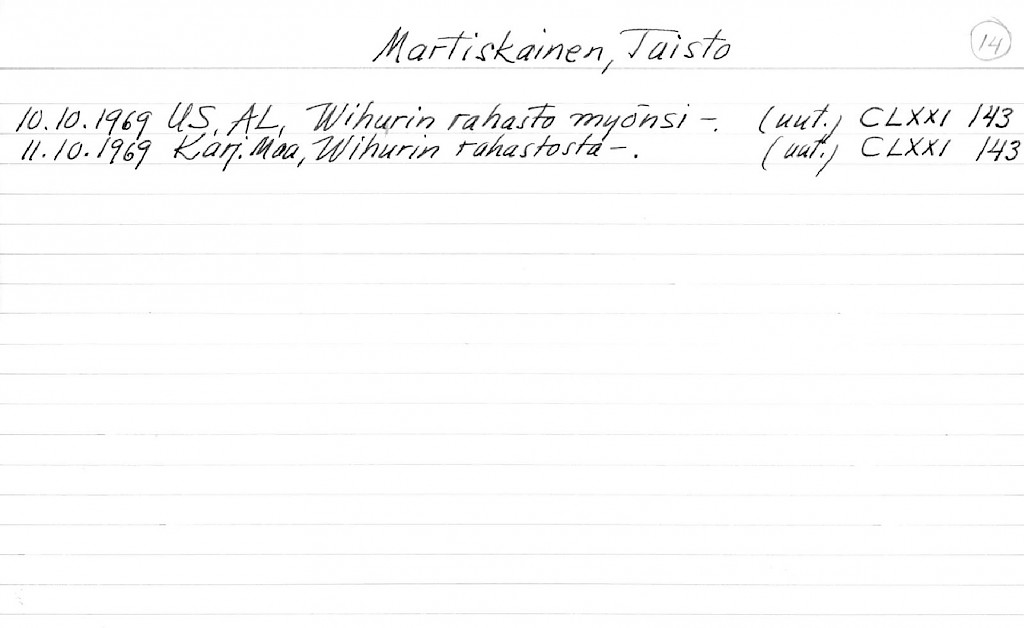 Martiskainen, Taisto
14
10.10.1969 US, AL, Wihurin rahasto myönsi –. (uut.) CLXXI 143
11.10.1969 Karj. Maa, Wihurin rahastosta –. (uut.) CLXXI 143